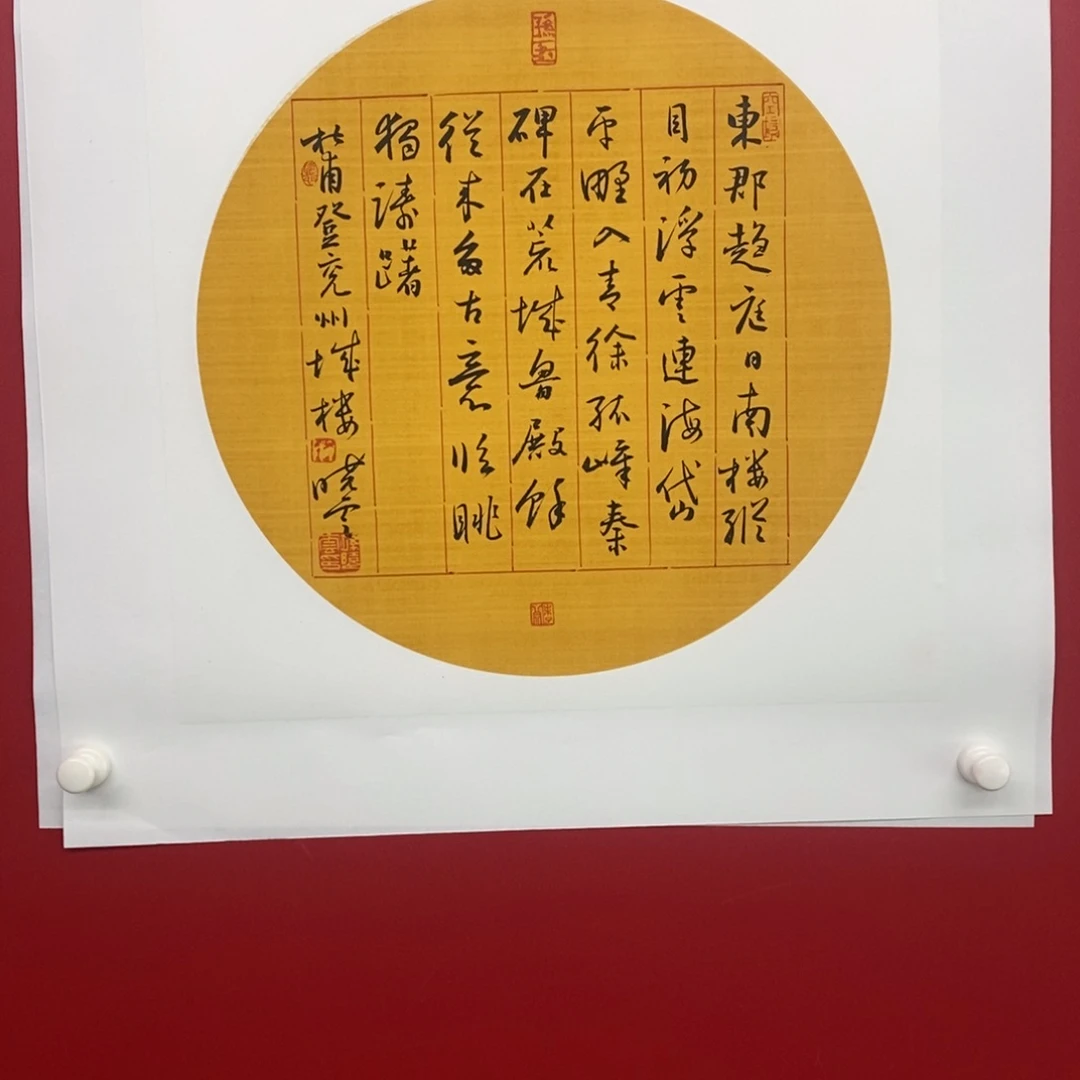 東郡趨庭日南楼縱
目初浮雲連海岱
平野入青徐孤嶂秦
碑在荒城魯殿餘
從来多古意臨眺
獨躊躇
杜甫登兗州城楼 晓雲